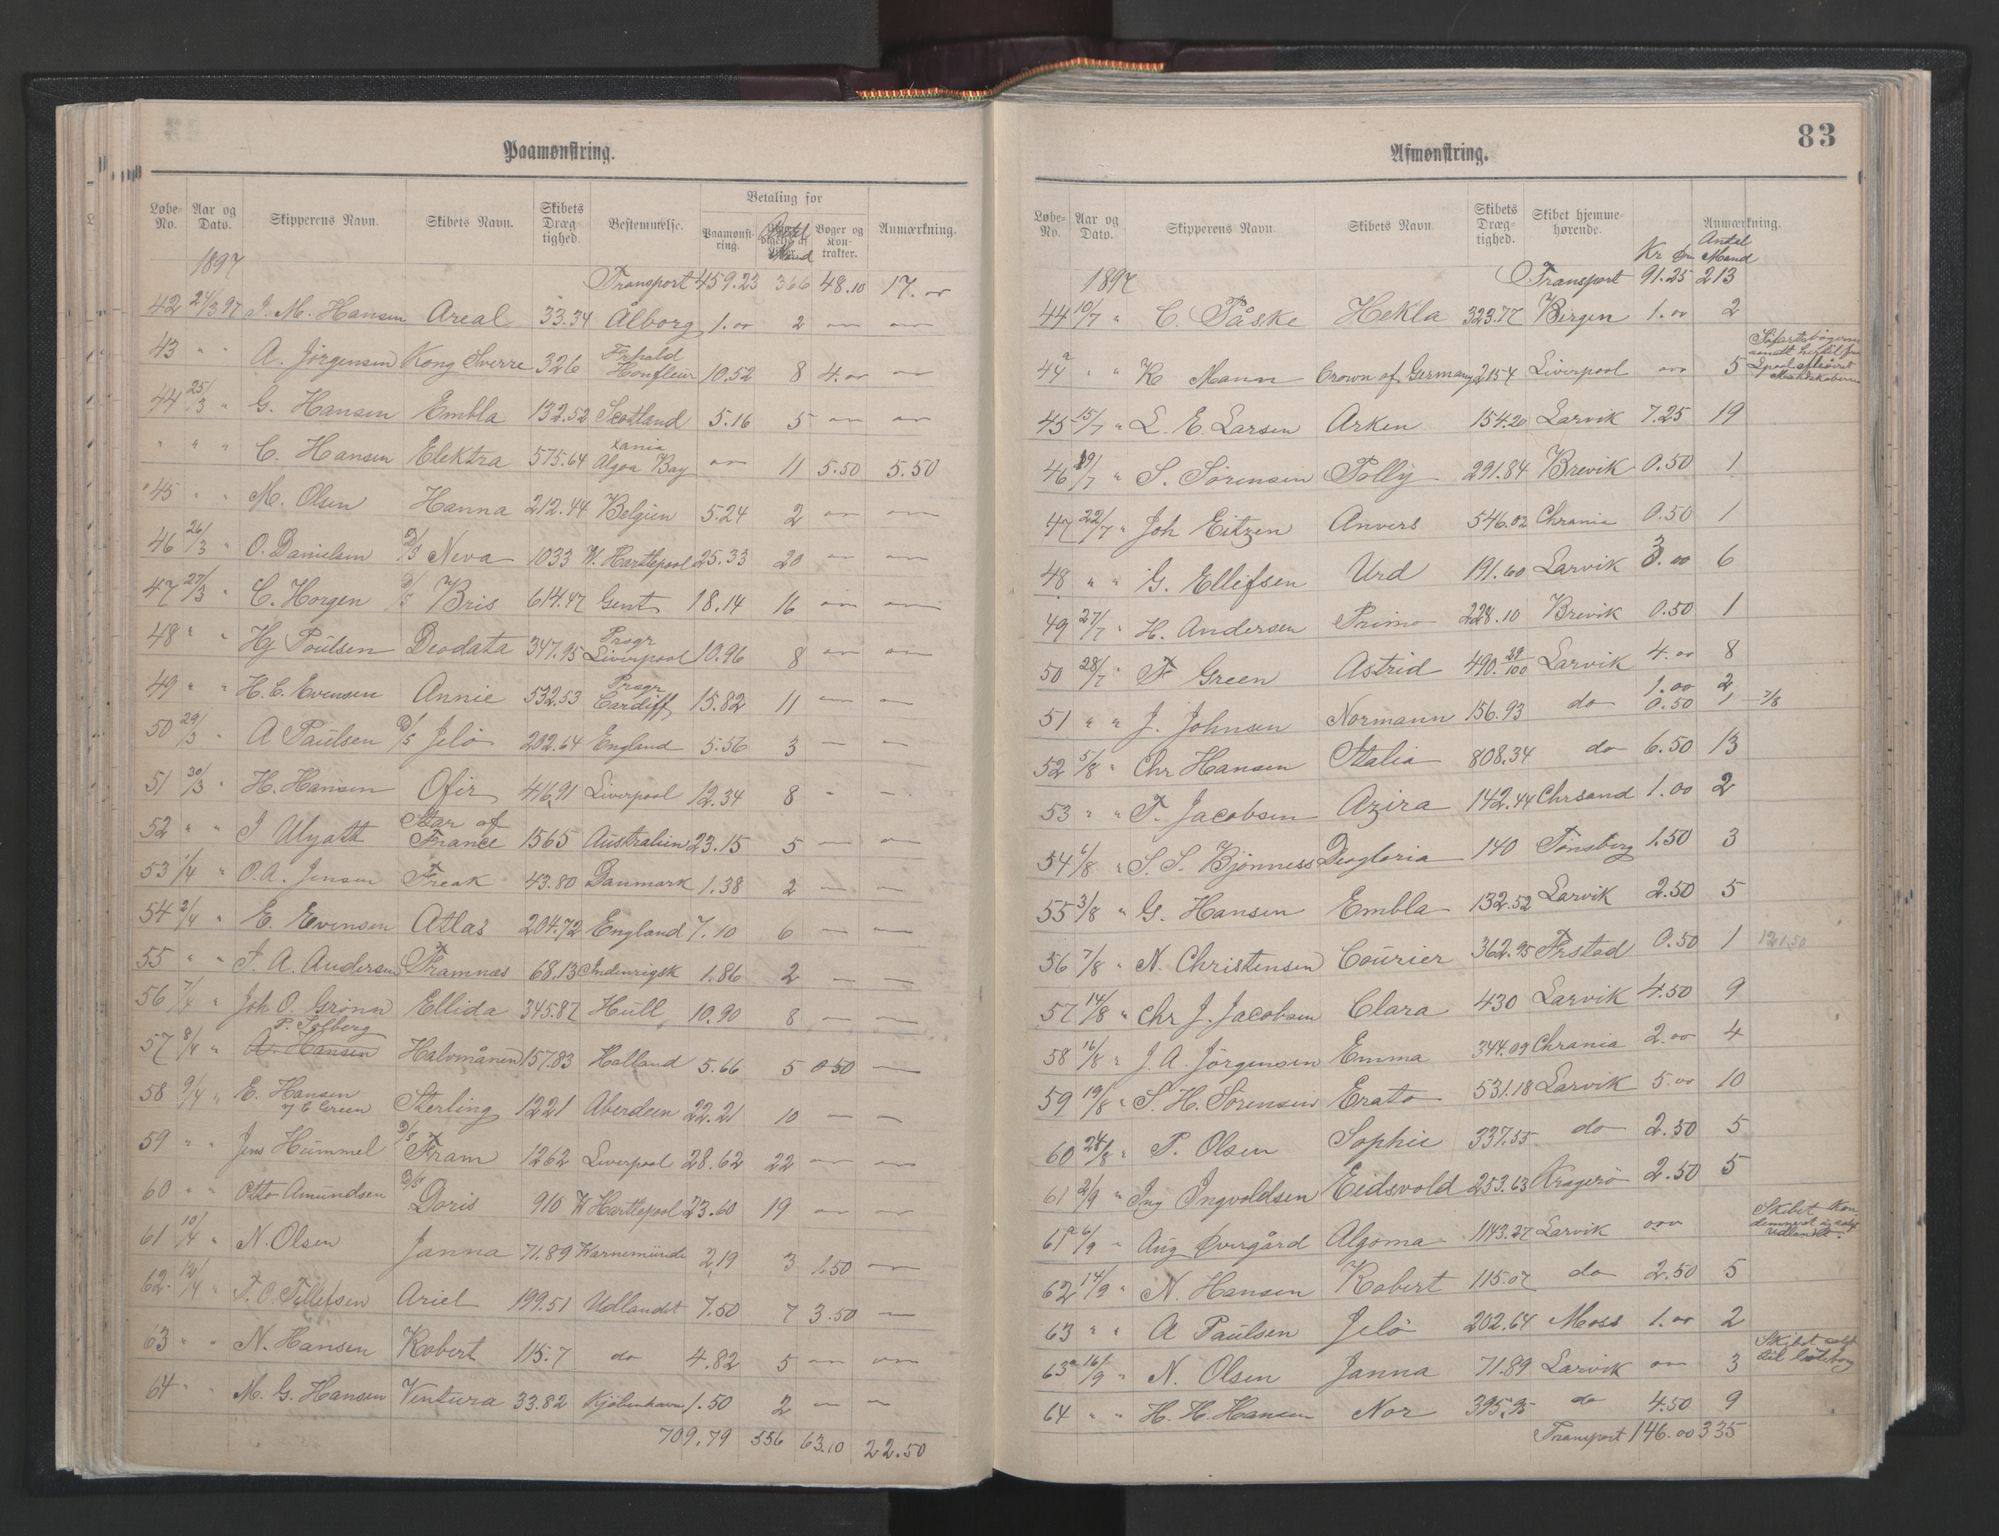 Paamonstring.
Løbe-No. Aar og Dato. Skipperens Navn. Skibets Navn. Skibets Dræg tighed. Bestemmelse. Betaling for Paamonstring. Antal Mand Bøger og Kontrakter. Anmærkning.
1897
Transport 459.23 366 48.10 17.00
42 24/3 97 J. M. Hansen Areal 33.34 Ålborg 1.00 2 — —
43 " " A. Jørgensen Kong Sverre 326 Frhald Honfleur 10.52 8 4.00 —
44 25/3 " G. Hansen Embla 132.52 Scotland 5.16 5 — —
" " " C. Hansen Elektra 575.64 Xania Algoa Bay — 11 5.50 5.50
45 " " M. Olsen Hanna 212.44 Belgien 5.24 2 — —
46 26/3 " O. Danielsen D/S Neva 1033 W. Hartlepool 25.33 20 — —
47 27/3 " C. Horgen D/S Bris 614.47 Gent 18.14 16 — —
48 " " Hj Poulsen Deodata 347.95 Progr Liverpool 10.96 8 — —
49 " " H. C. Evensen Annie 532.53 Progr Cardiff 15.82 11 — —
50 29/3 " A Paulsen D/S Jelö 202.64 England 5.56 3 — —
51 30/3 " H. Hansen Ofir 416,91 Liverpool 12.34 8 - -
52 " " J Ulyath Star of France 1565 Australien 23.15 5 — —
53 1/4 " O. A. Jensen Freak 43.80 Danmark 1.38 2 — —
54 2/4 " E. Evensen Atlas 204.72 England 7.10 6 — —
55 " " J. A. Andersen Framnæs 68.13 Indenrigsk 1.86 2 — —
56 7/4 " Joh O. Grönn Ellida 345.87 Hull 10.90 8 — —
P. Solberg
57 8/4 " A. Hansen Halvmånen 157.83 Holland 5.66 5 0.50 —
58 9/4 " E. Hansen v/ C Green Sterling 1221 Aberdeen 22.21 10 — —
59 " " Jens Hummel D/S Fram 1262 Liverpool 28.62 22 — —
60 " " Otto Amundsen D/S Doris 910 W Hartlepool 23.60 19 — —
61 10/4 " N. Olsen Janna 71.89 Warnemünde 2,19 3 1.50 —
62 12/4 " T. O. Tellefsen Ariel 199.51 Udlandet 7.50 7 3.50 —
63 " " N. Hansen Robert 115.7 do 4.82 5 — —
64 " " M. G. Hansen Ventura 33.82 Kjöbenhavn 1.50 2 — —
709.79 556 63.10 22.50
83
Afmonstring.
Løbe-No. Aar og Dato. Skipperens Navn. Skibets Navn. Skibets Dræg-tighed. Skibet hjemme-hørende. Anmærkning.
Kr Øre Antal Mand
1897 Transport 91.25 213
44 10/7 " C. Påske Hekla 323.77 Bergen 1.00 2
44a " " K Mann Crown of Germany 2154 Liverpool — 5
45 15/7 " L. E. Larsen Arken 154.20 Larvik 7.25 19
46 19/7 " S. Sörensen Polly 291.84 Brevik 0.50 1
47 22/7 " Joh Eitzen Anvers 546.02 Chrania 0.50 1
48 " " G. Ellefsen Urd 191.60 Larvik 3.00 6
49 27/7 " H. Andersen Primo 228.10 Brevik 0.50 1
50 28/7 " F Green Astrid 490.29/100 Larvik 4.00 8
51 " " J. Johnsen Normann 156.93 do 1.00 2
0.50 1 — 7/8
52 5/8 " Chr Hansen Italia 808.34 do 6.50 13
53 " " T. Jacobsen Azira 142.44 Chrsand 1.00 2
54 6/8 " S. S. Bjönness Deogloria 140 Tønsberg 1.50 3
55 3/8 " G. Hansen Embla 132.52 Larvik 2.50 5
56 7/8 " N. Christensen Courier 362.95 Frstad 0.50 1 121.50
57 14/8 " Chr J. Jacobsen Clara 430 Larvik 4.50 9
58 16/8 " J. A. Jörgensen Emma 344.09 Chrania 2.00 4
59 19/8 " S. H. Sörensen Erato 531.18 Larvik 5.00 10
60 24/8 " P. Olsen Sophie 337.55 do 2.50 5
61 2/9 " Ing Ingvoldsen Eidsvold 253.63 Kragerö 2.50 5
61a 6/9 " Aug Øvergård Algoma 1143.27 Larvik — Skibet kondemneret og solgt Udlandet.
62 14/9 " N. Hansen Robert 115.07 do 2.50 5
63 " " A Paulsen Jelö 202.64 Moss 1.00 2
63a 16/9 " N. Olsen Janna 71.89 Larvik — 3 Skibet solgt til Göteborg
64 " " H. H. Hansen Nor 395,95 do 4.50 9
Transport 146.00 335